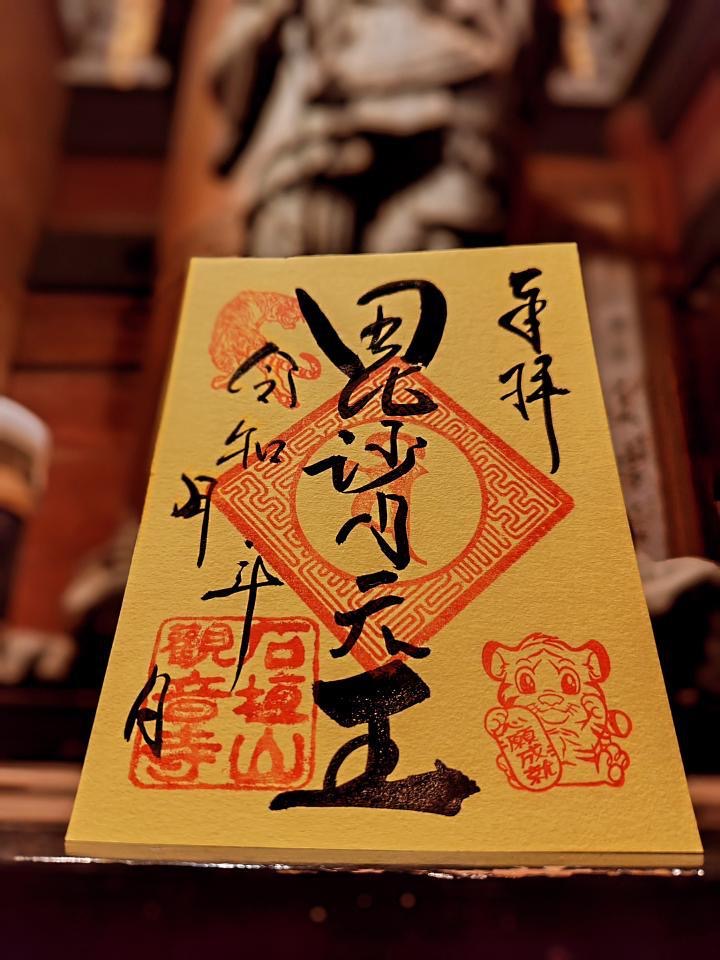 奉拝
毘沙門天王
令和年
月日
石垣山
觀音寺
願成就